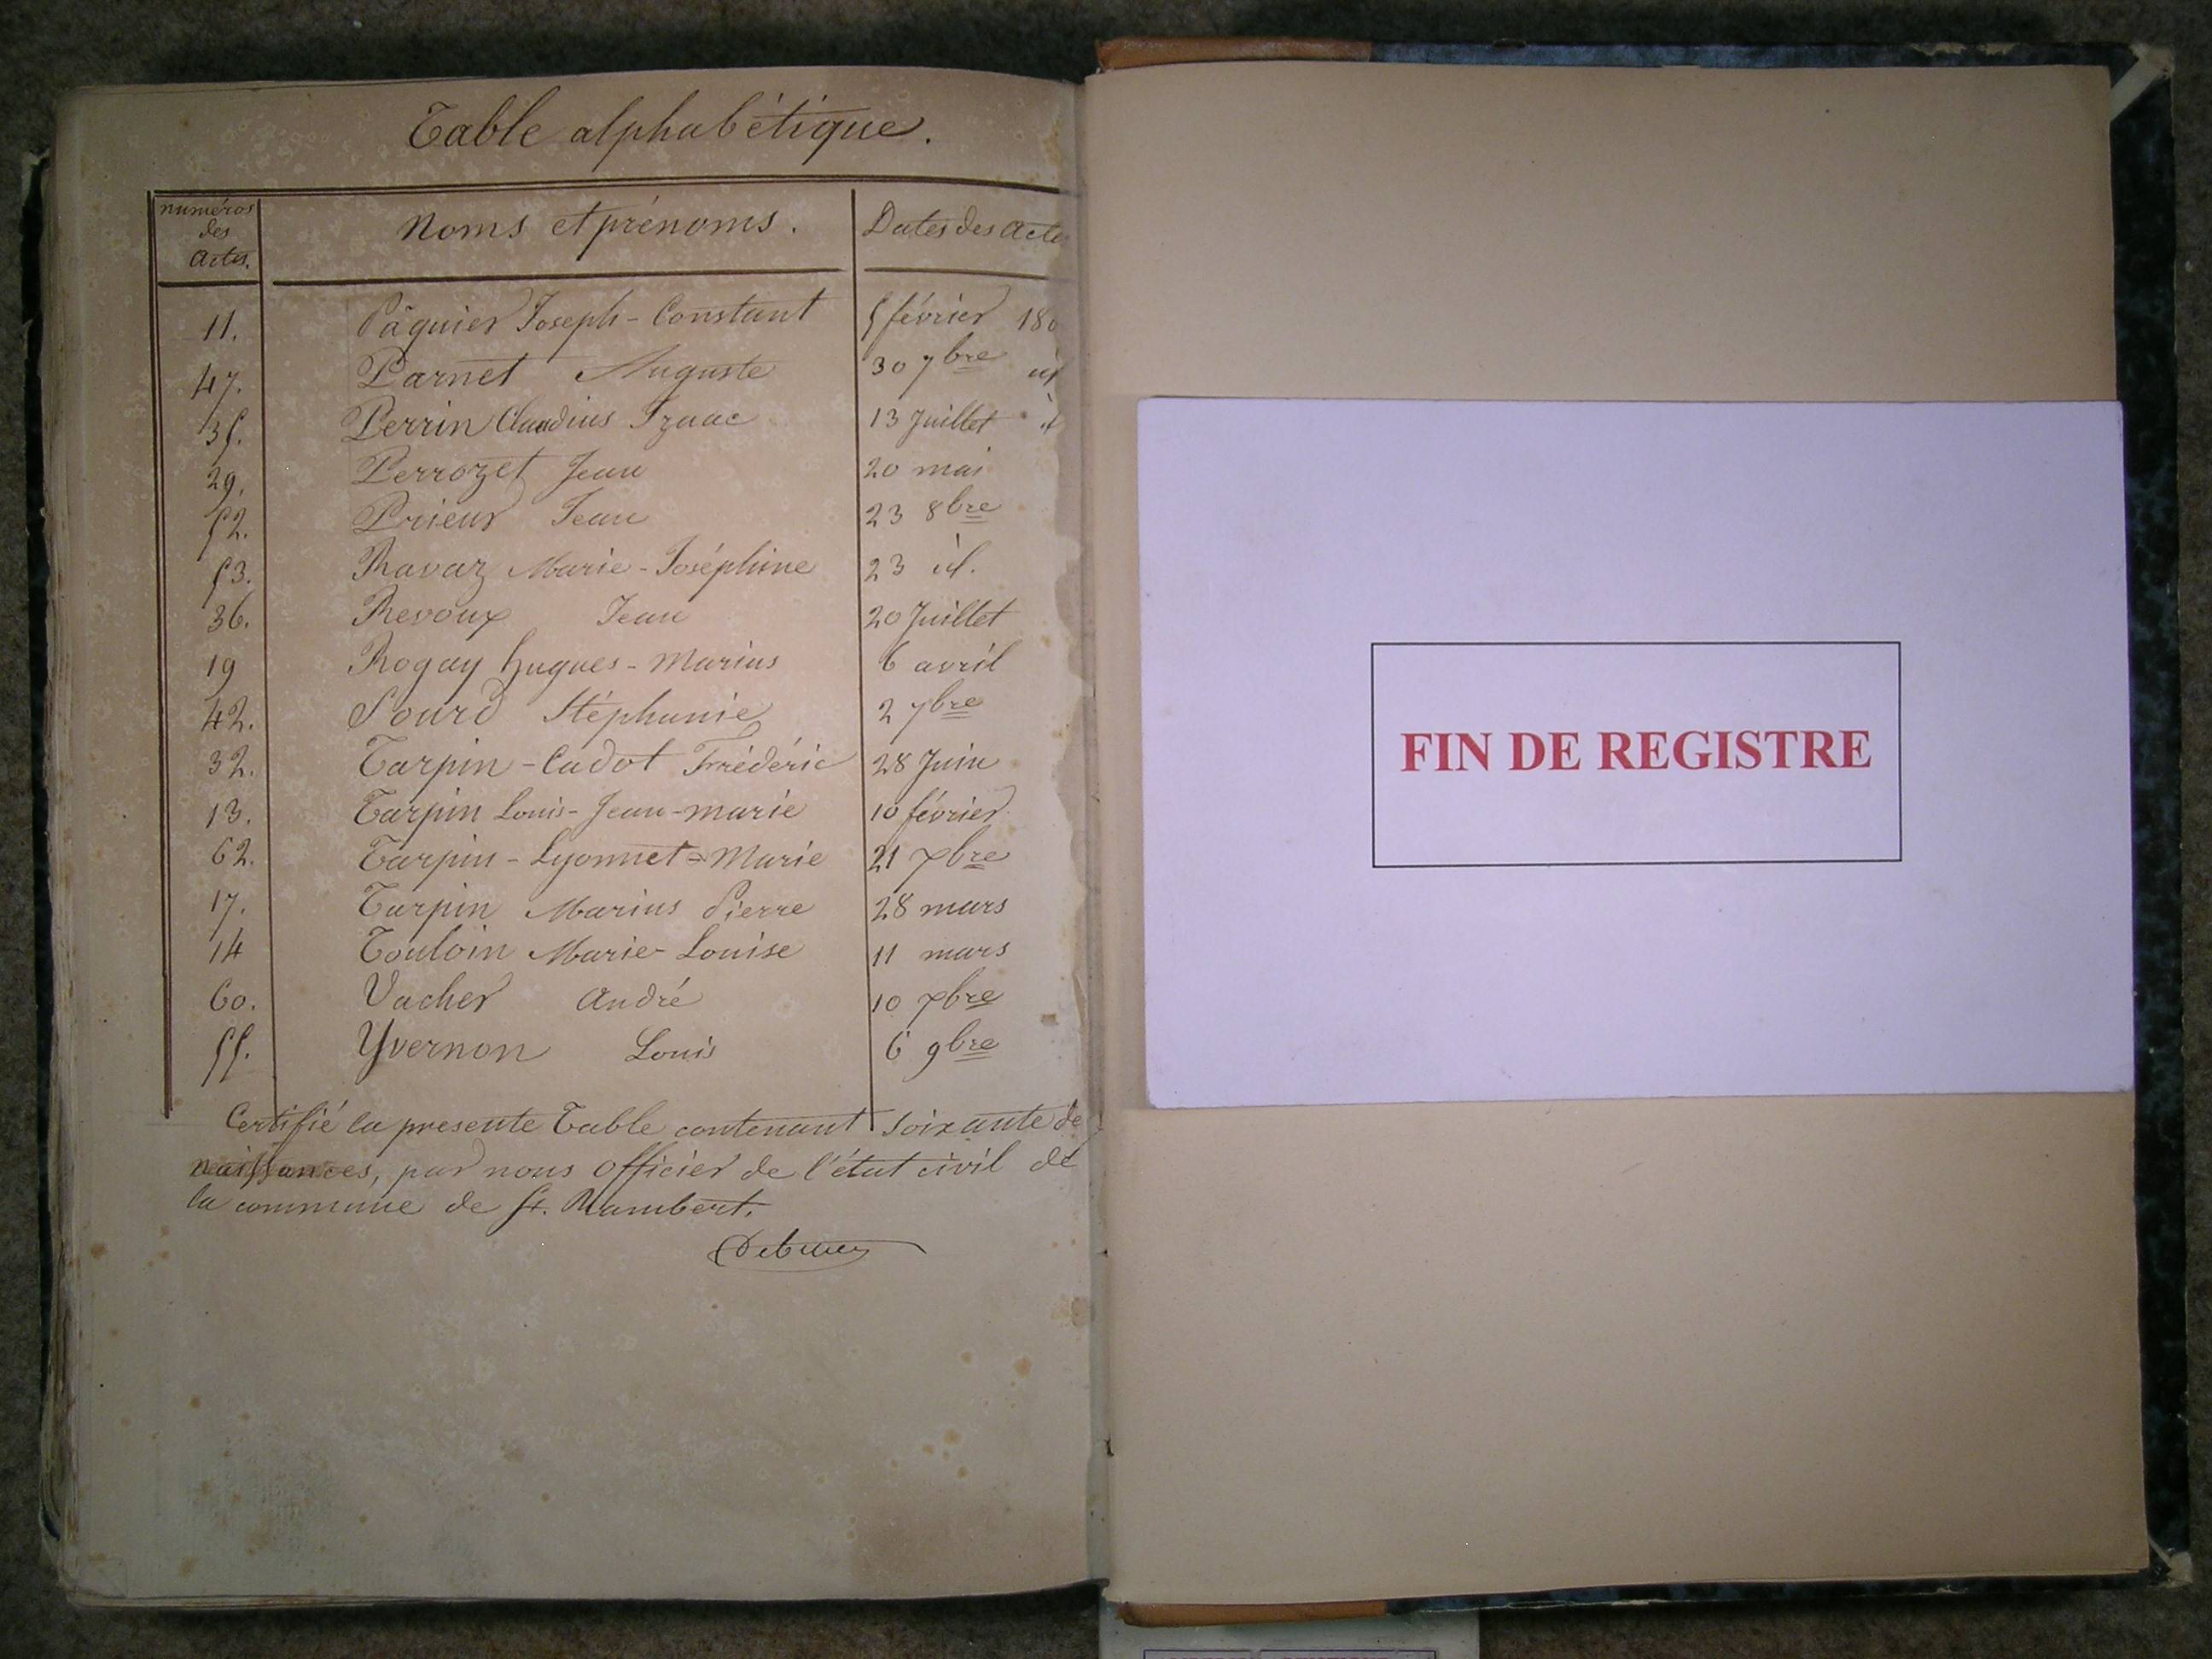 Table alphabétique.
numéros des Actes. Noms et prénoms. Dates des Actes
11. Pâquier Joseph-Constant 5 février 18
47. Parnet Auguste 30 7bre id
35. Perrin Claudius Izaac 13 Juillet id
29. Perrozet Jean 20 mai
52. Prieur Jean 23 8bre
53. Ravaz Marie-Joséphine 23 id.
36. Revoux Jean 20 Juillet
19 Rogay hugues-Marius 6 avril
42. Sourd Stéphanie 2 7bre
32. Tarpin-Cadot Frédéric 28 Juin
13. Tarpin Louis-Jean-marie 10 février
62. Tarpin-Lyonnet=Marie 21 xbre
17. Tarpin Marius Pierre 28 mars
14 Touloin Marie-Louise 11 mars
60. Vacher André 10 xbre
55. Yvernon Louis 6 9bre
Certifié la presente Table contenant soixante de
naissances, par nous officier de l'état civil de
la commune de St. Rambert.
FIN DE REGISTRE